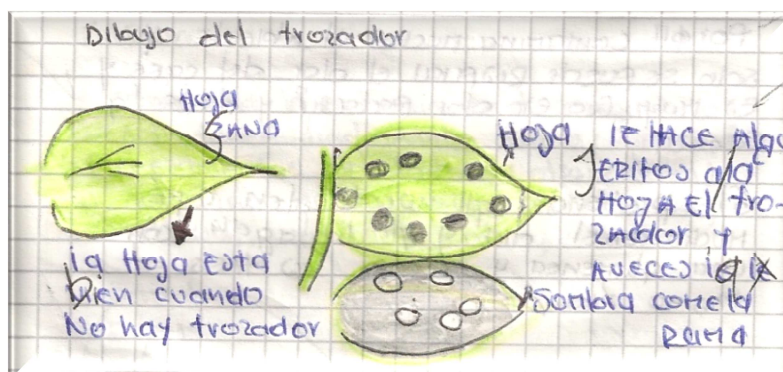 Dibujo del trozador
Hoja
ZANA
La Hoja Esta
Bien cuando
No hay trozador
Hoja
lE HACE Algu
ERITOS a la
HOJA El tro-
zador y
AVECES le
Sombra come la
RAMA